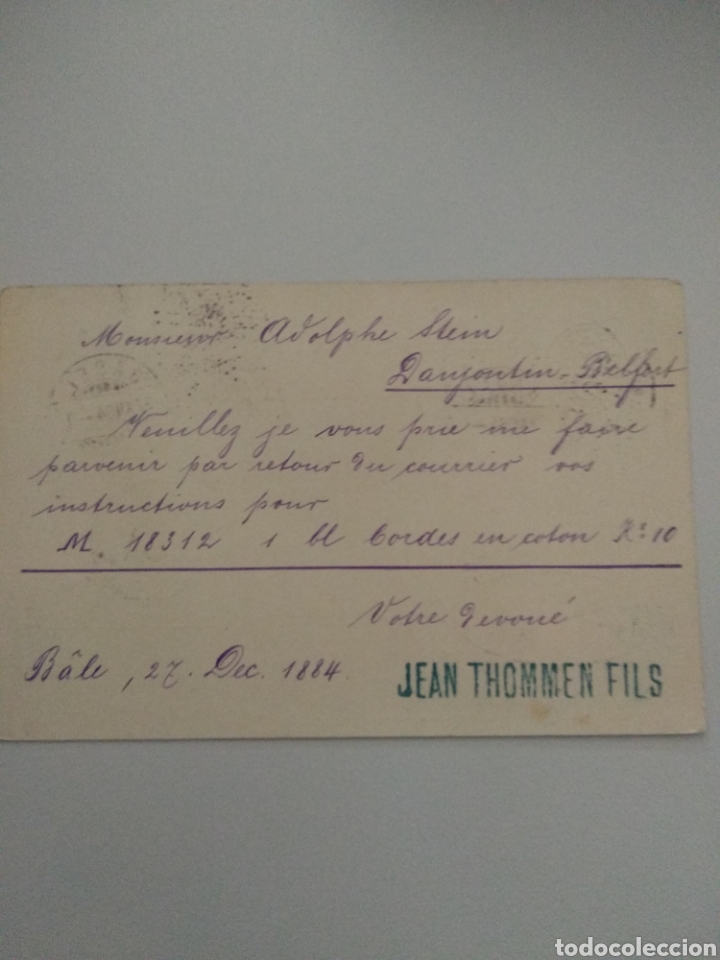 Monsieur Adolphe Stein
Danjoutin-Belfort
Veuillez je vous prie me faire
parvenir par retour du courrier vos
instructions pour
M. 18312 1 bl Cordes en coton K: 10
Votre dévoué
Bâle, 27. Dec. 1884.
JEAN THOMMEN FILS
todocoleccion